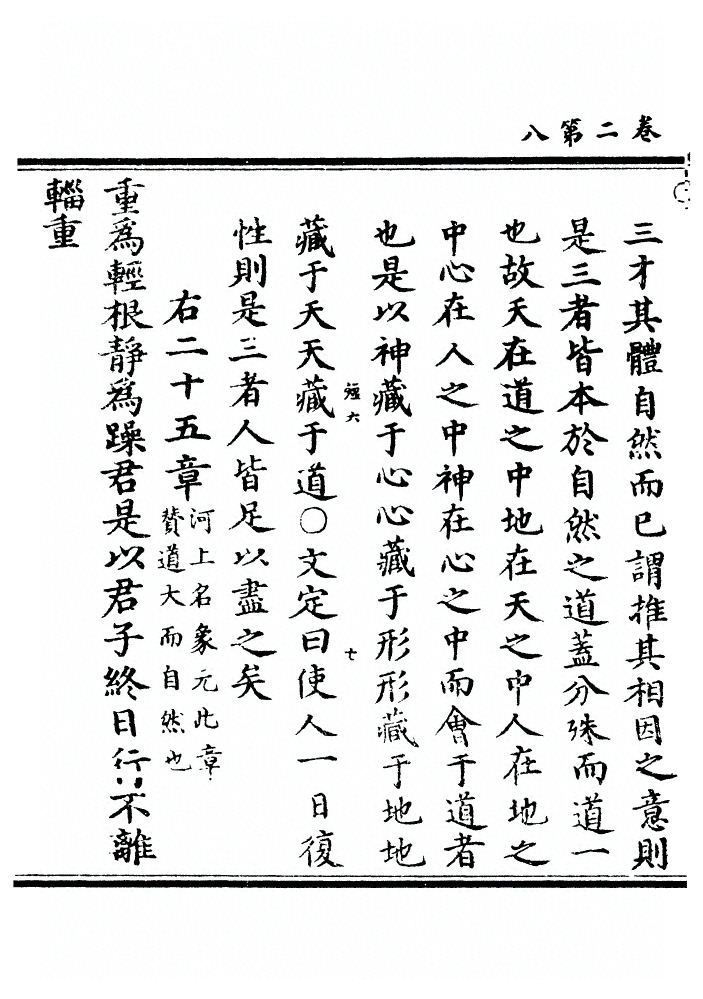 卷二第八
三才其體自然而已謂推其相因之意則
是三者皆本於自然之道蓋分殊而道一
也故天在道之中地在天之中人在地之
中心在人之中神在心之中而會于道者
也是以神藏于心心藏于形形藏于地地
短六
七
藏于天天藏于道○文定曰使人一日復
性則是三者人皆足以盡之矣
右二十五章河上名象元此章
賛道大而自然也
重為輕根靜為躁君是以君子終日行不離
輜重